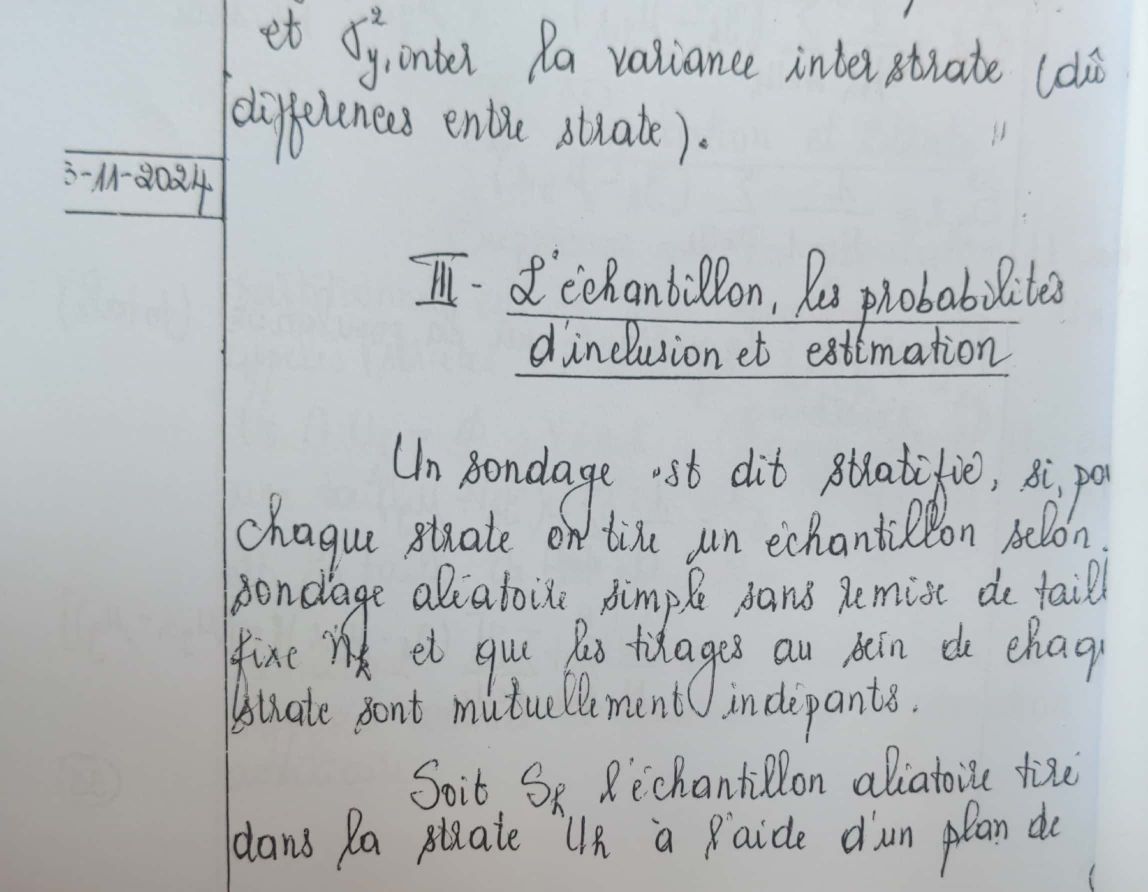 et σ²y,inter la variance inter strate (dû
differences entre strate).
3-11-2024
III - L'échantillon, les probabilités
d'inclusion et estimation
Un sondage est dit stratifié, si, po
chaque strate on tire un échantillon selon
sondage aliatoire simple sans remise de taill
fixe nh et que les tirages au sein de chaq
strate sont mutuellement indépants.
Soit Sh l'échantillon aliatoire tiré
dans la strate Uh à l'aide d'un plan de